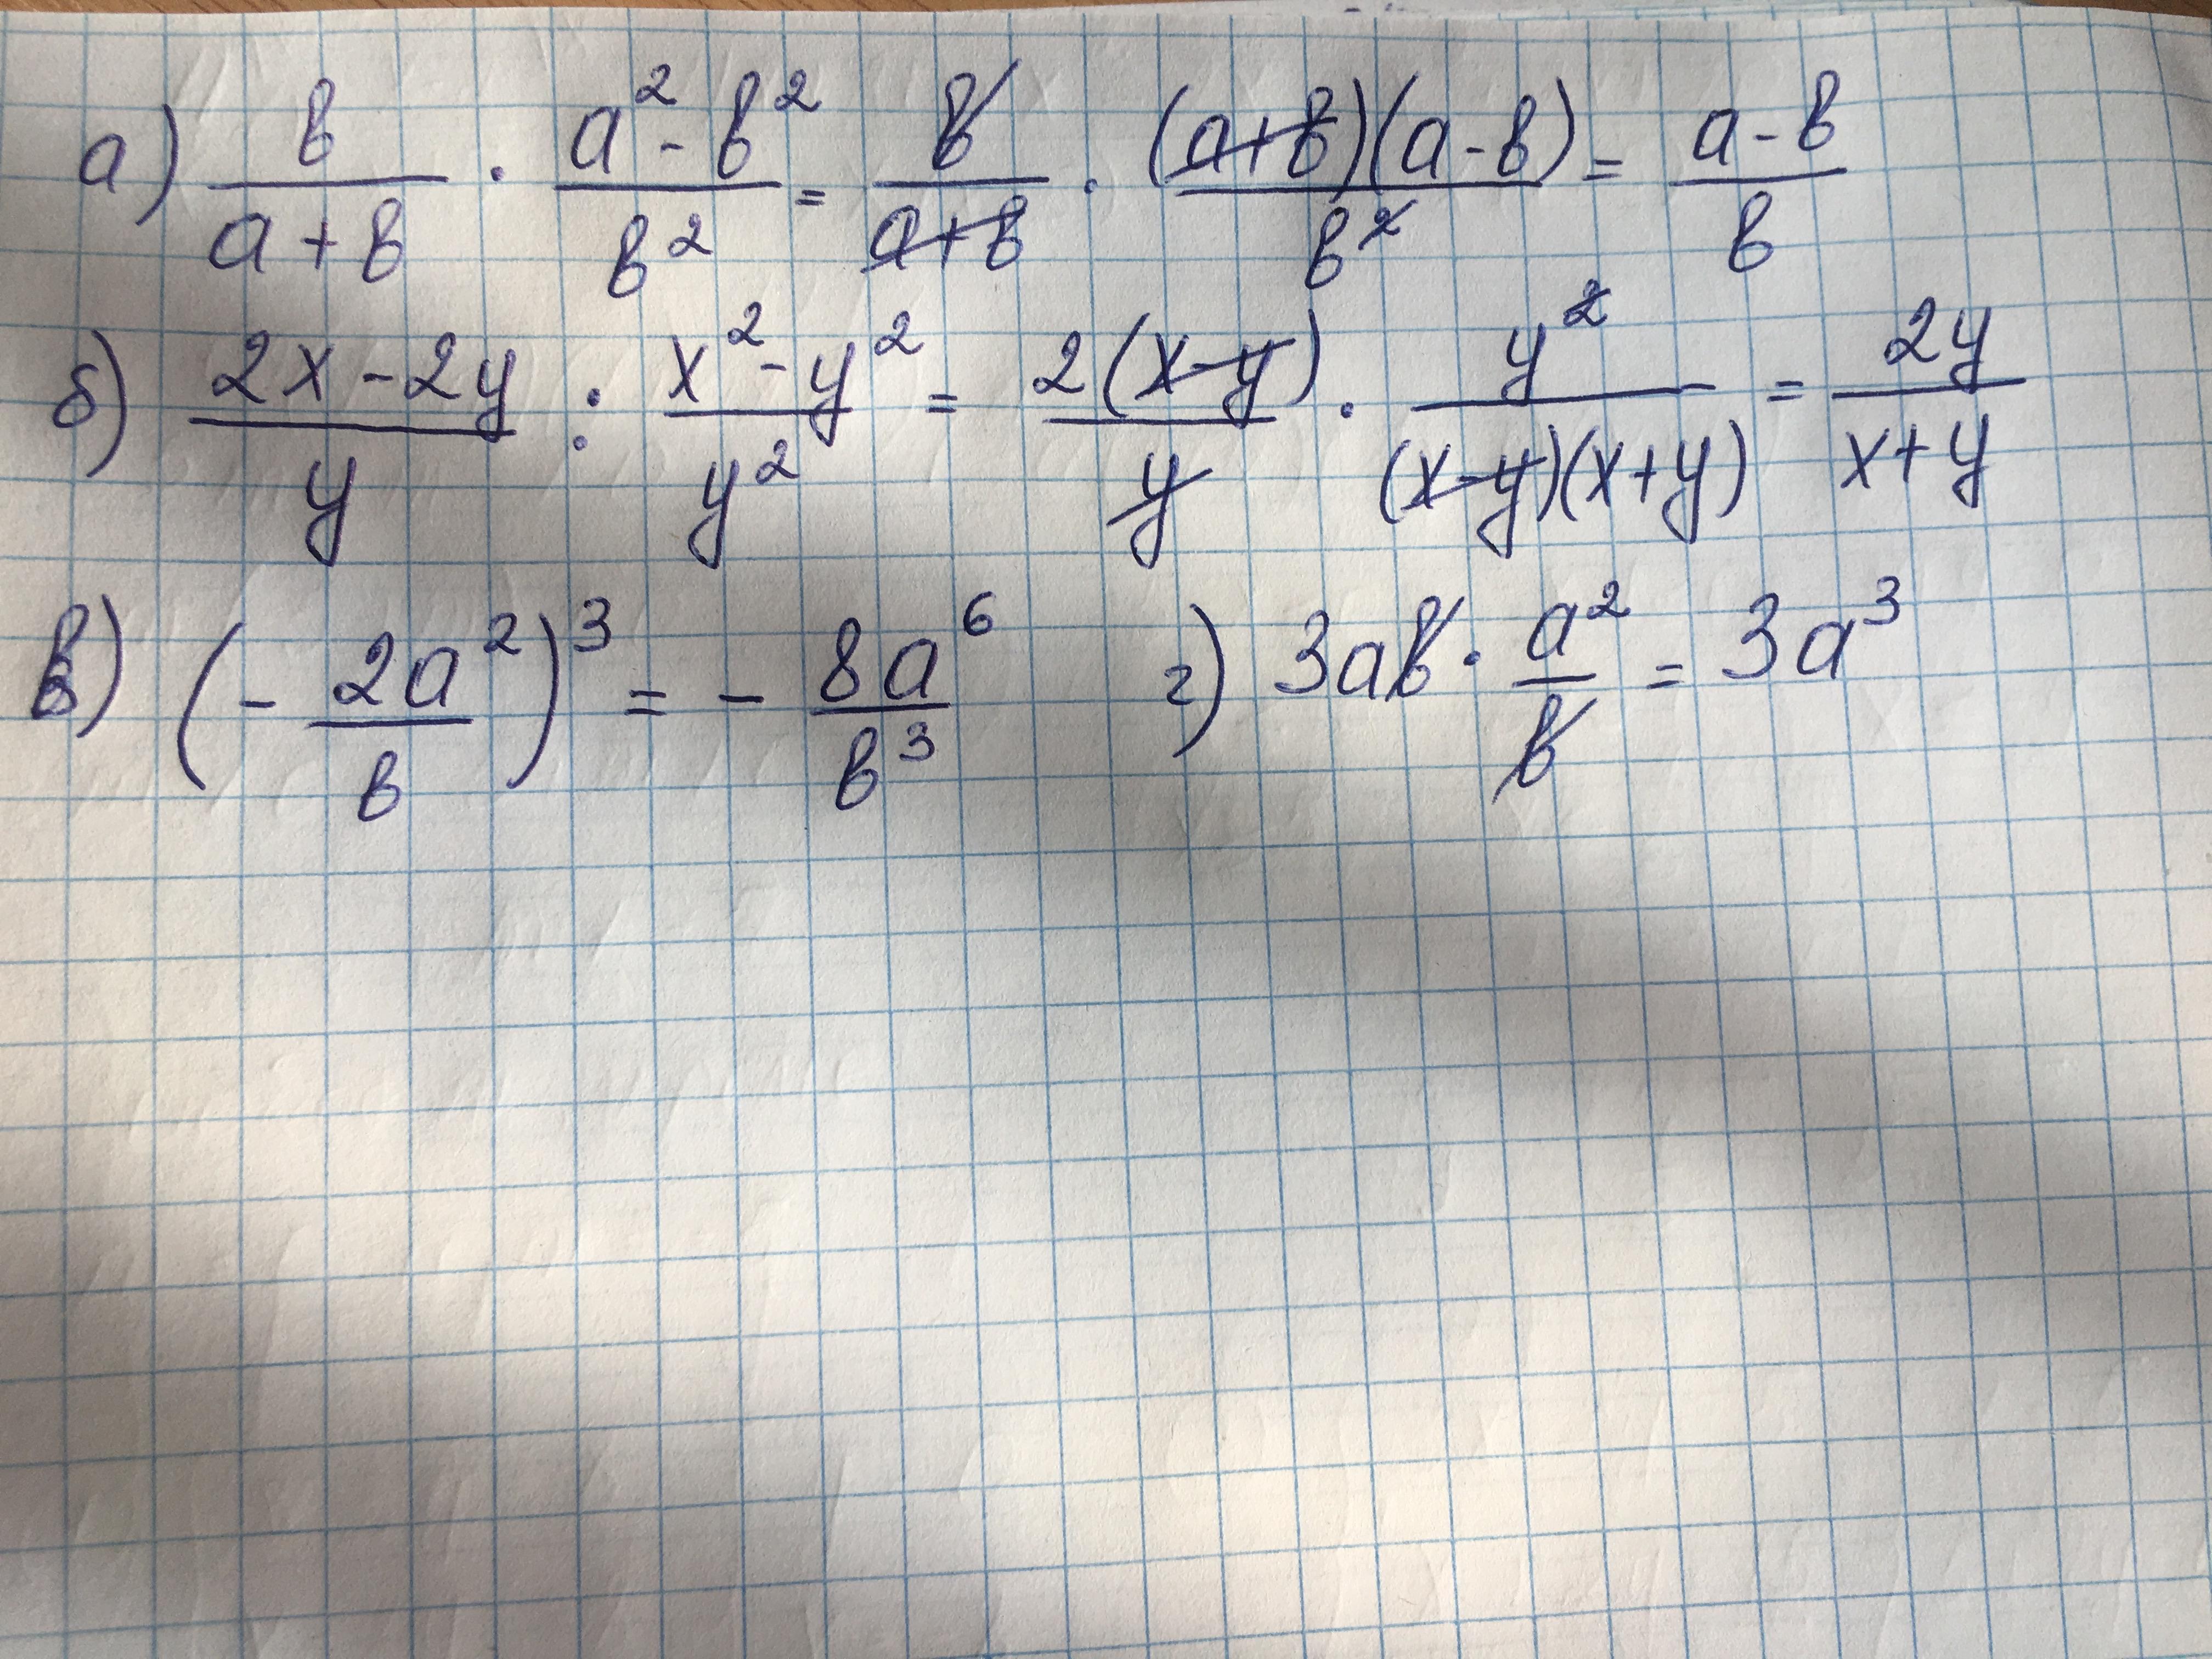 а) b/(a+b) · (a²-b²)/b² = b/(a+b) · (a+b)(a-b)/b² = (a-b)/b
б) (2x-2y)/y : (x²-y²)/y² = 2(x-y)/y · y²/((x-y)(x+y)) = 2y/(x+y)
в) (- 2a²/b)³ = - 8a⁶/b³ г) 3ab · a²/b = 3a³